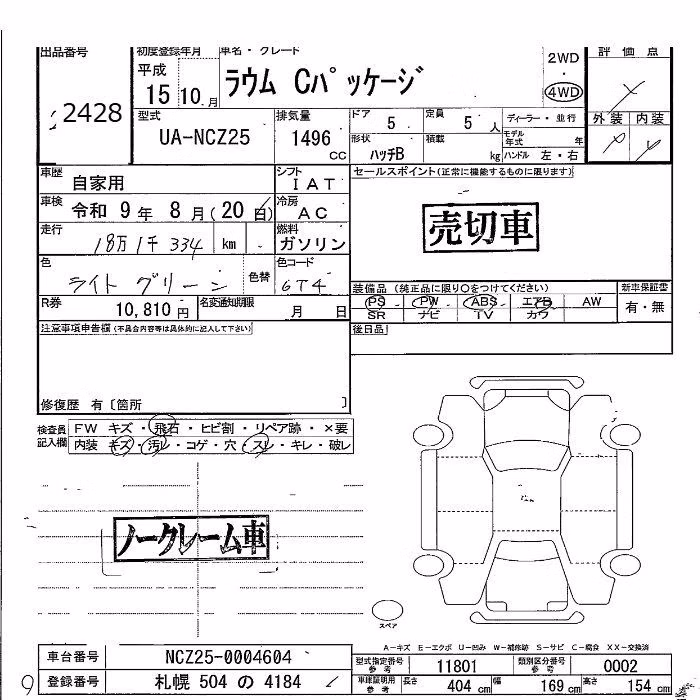 出品番号 初度登録年月 車名・グレード 2WD 評価点
2428 平成 15 10.月 ラウム Cパッケージ ・ 4WD
型式 排気量 ドア 5 定員 5 人 ディーラー・並行 外装 内装
UA-NCZ25 1496 CC 形状 ハッチB 積載 kg モデル年式 年 ハンドル 左・右
車歴 自家用 シフト IAT セールスポイント(正常に機能するものに限ります)
車検 令和 9 年 8 月(20 日) 冷房 AC
売切車
走行 18万1千334 km 燃料 ガソリン
色 ライトグリーン 色替 色コード 6T4
装備品(純正品に限り○をつけてください) 新車保証書
R券 10,810 円 名変通知期限 月 日
PS PW ABS エアB AW 有・無
SR ナビ TV カワ
注意事項申告欄(不具合内容等は具体的に記入して下さい) 後日品
修復歴 有〔箇所 〕
検査員記入欄 FW キズ・飛石・ヒビ割・リペア跡・×要
内装 キズ・汚レ・コゲ・穴・スレ・キレ・破レ
ノークレーム車
スペア
A-キズ E-エクボ U-凹み W-補修跡 S-サビ C-腐食 XX-交換済
車台番号 NCZ25-0004604 型式指定番号 参考 11801 類別区分番号 参考 0002
登録番号 札幌 504 の 4184 車庫証明用 参考 長さ 404 cm 幅 169 cm 高さ 154 cm